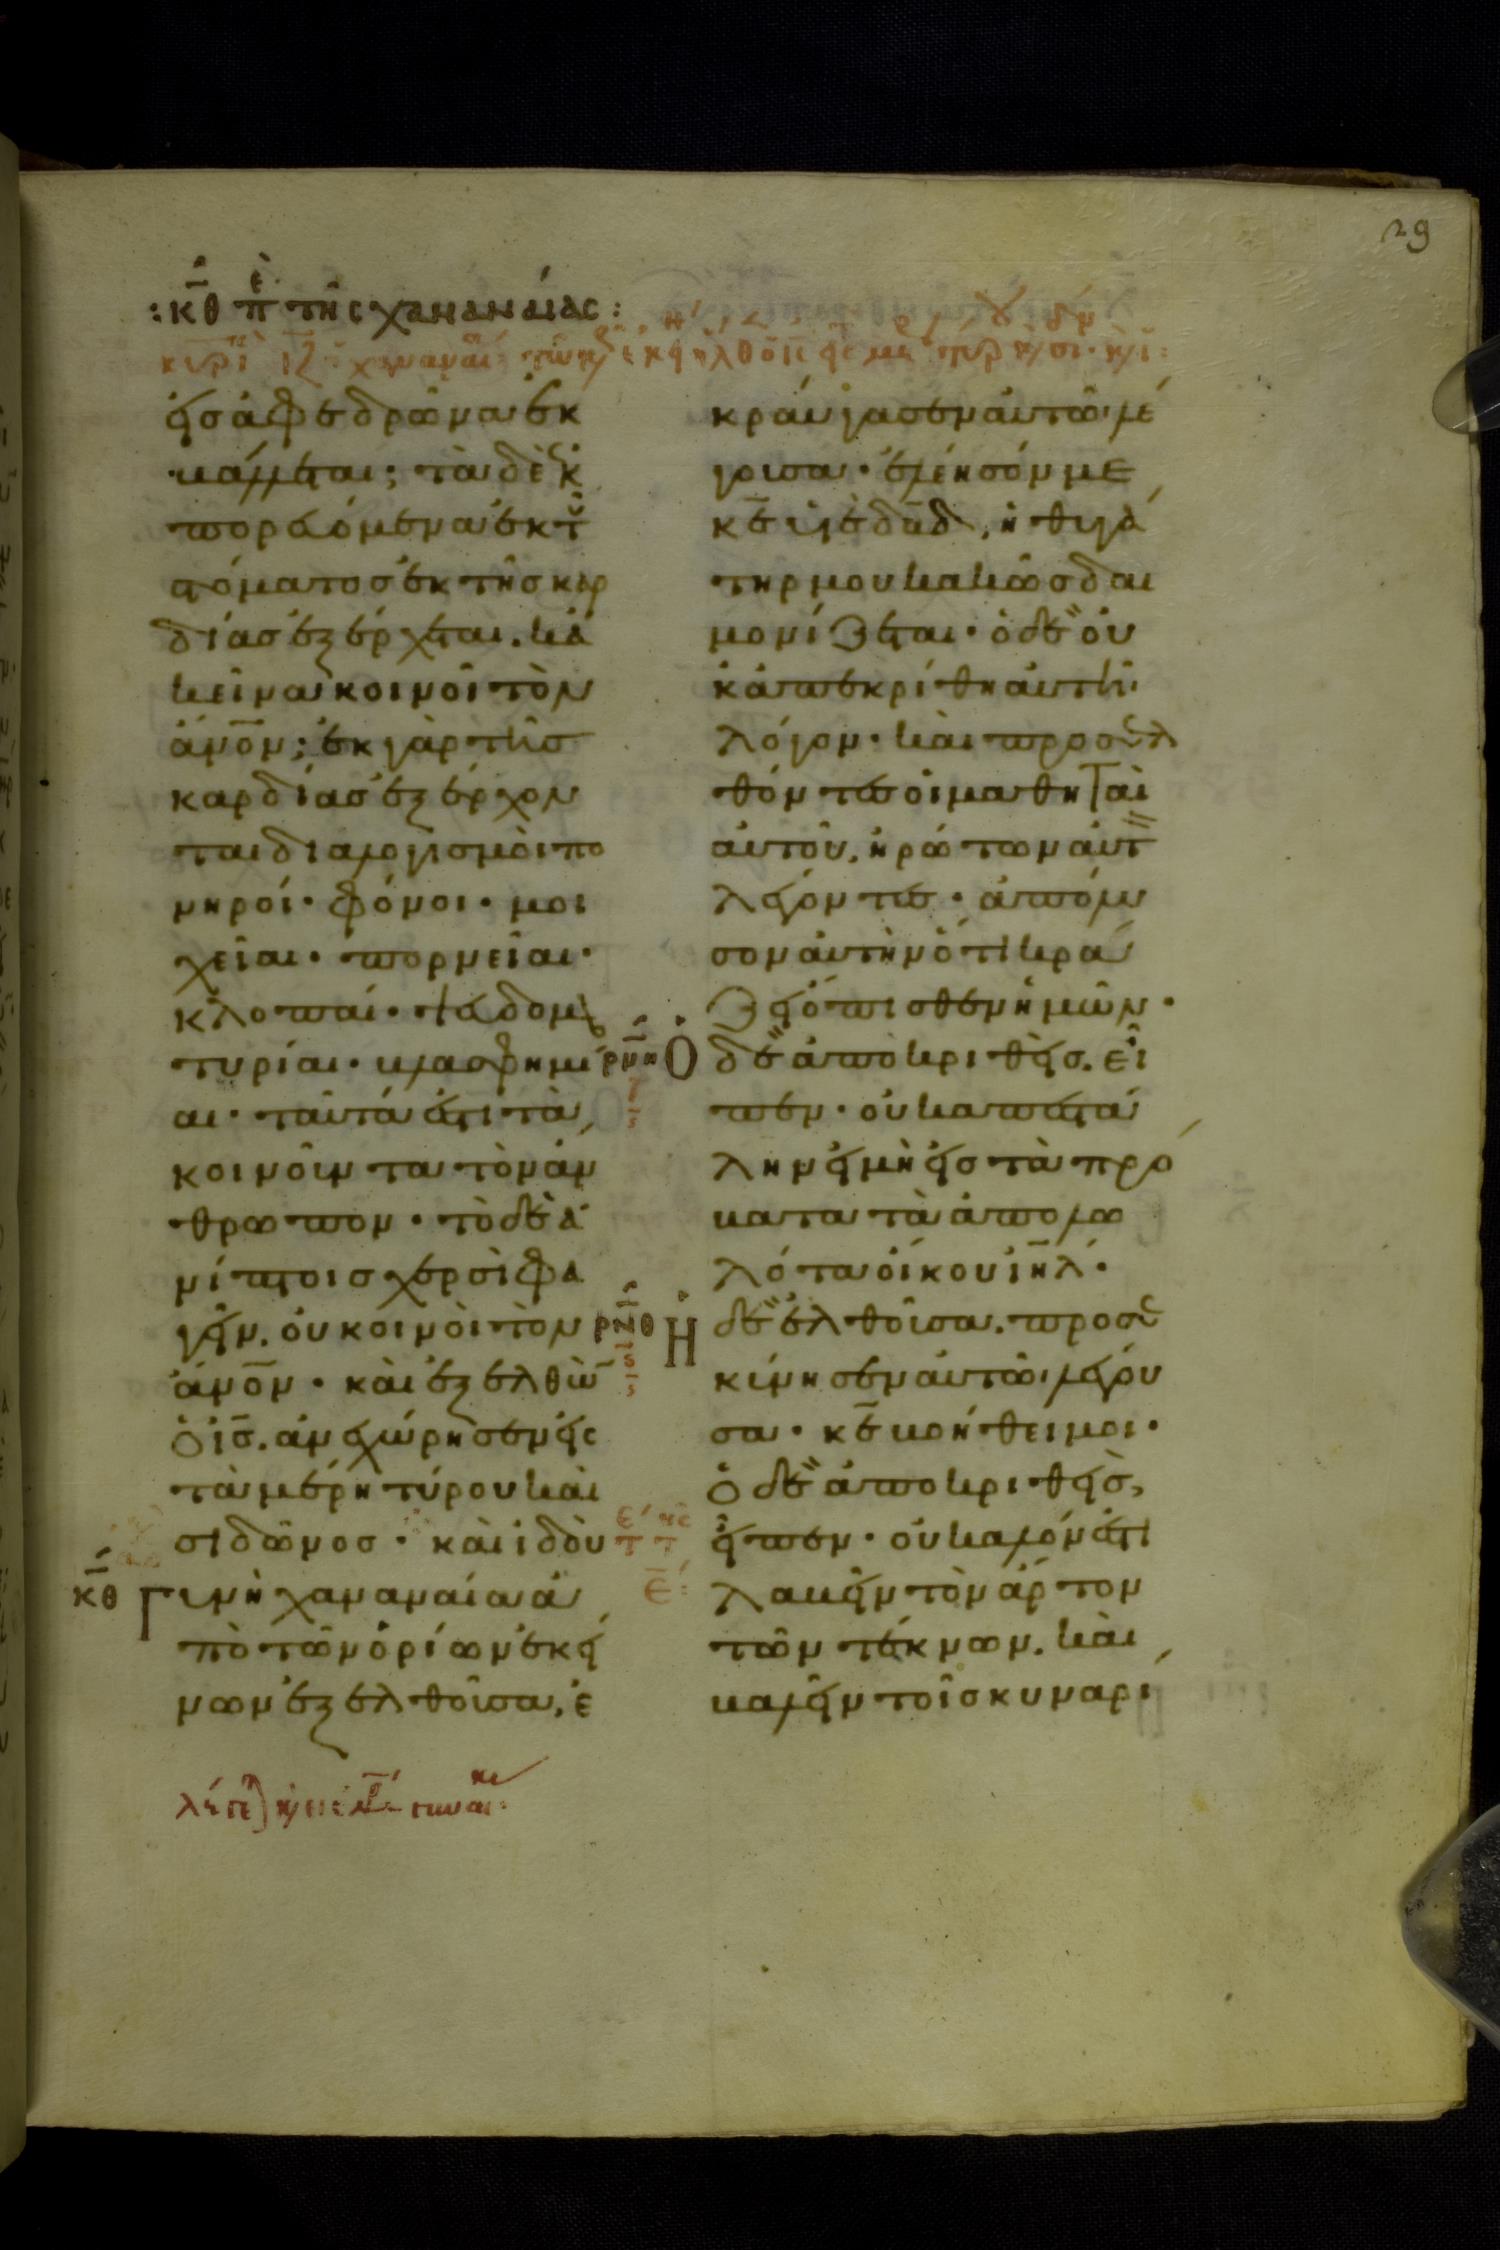 29
:κθ π̅ὲ τῆς χαναναίας:
εἰς ἀφεδρῶνα ἐκ
βάλλεται; τὰ δὲ ἐκ
πορευόμενα ἐκ τοῦ
στόματοσ ἐκ τῆσ καρ
δίασ ἐξέρχεται. κα
κεῖνα κοινοῖ τὸν
ἄν̅ο̅ν; ἐκ γὰρ τῆσ
καρδίασ ἐξέρχον
ται διαλογισμοὶ πο
νηροί· φόνοι· μοι
χεῖαι· πορνεῖαι·
κλοπαί· ψευδομαρ
τυρίαι· βλασφημί
αι· ταῦτά ἐστι τὰ
κοινοῦντα τὸν ἄν
θρωπον· τὸ δὲ ἀ
νίπτοισ χερσὶ φα
γεῖν. οὐ κοινοῖ τὸν
ἄν̅ο̅ν· καὶ ἐξελθὼν
ὁ ι̅σ̅. ἀνεχώρησεν εἰς
τὰ μέρη τύρου καὶ
σιδῶνοσ· καὶ ἰδοὺ
κθ Γυνὴ χαναναία ἀ
πὸ τῶν ὁρίων ἐκεί
νων ἐξελθοῦσα, ἐ
κραύγασεν αὐτῶ λέ
γουσα· ἐλέησόν με
κ̅ε̅ υἱὲ δ̅α̅δ̅, ἡ θυγά
τηρ μου κακῶσ δαι
μονίζεται· ὁ δὲ οὐ
κ ἀπεκρίθη αὐτῆ
λόγον· καὶ προσελ
θόντεσ οἱ μαθηταὶ
αὐτοῦ, ἠρώτων αὐτ
λέγοντεσ· ἀπόλυ
σον αὐτὴν ὅτι κρά
ζει ὄπισθεν ἡμῶν·
ρνη Ὁ δὲ ἀποκριθεὶσ. εἶ
πεν· οὐκ ἀπεστά
λην εἰ μὴ εἰσ τὰ πρό
βατα τὰ ἀπολω
λότα οἴκου ι̅η̅λ̅·
ρνθ Ἡ δὲ ἐλθοῦσα. προσε
κύνησεν αὐτῶ λέγου
σα· κ̅ε̅ βοήθει μοι·
ὁ δὲ ἀποκριθεὶσ,
εἶπεν· οὐ καλόν ἐστι
λαβεῖν τὸν ἄρτον
τῶν τέκνων. καὶ
βαλεῖν τοῖσ κυναρί